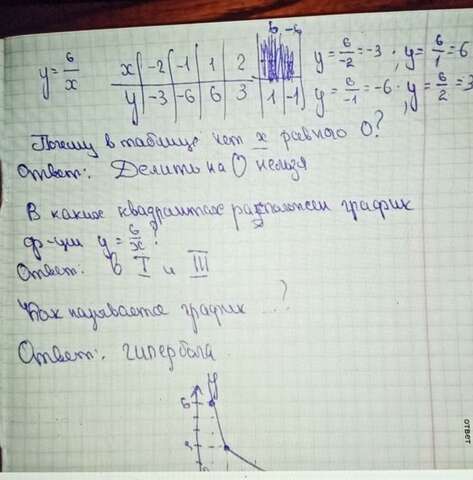 y = 6/x
x | -2 | -1 | 1 | 2 | 6 | -6
y | -3 | -6 | 6 | 3 | 1 | -1
y = 6/-2 = -3 ; y = 6/1 = 6
y = 6/-1 = -6 ; y = 6/2 = 3
Почему в таблице нет x равного 0?
Ответ: Делить на 0 нельзя
В каких квадрантах расположен график
ф-ции y = 6/x?
Ответ. в I и III
Как называется график ...?
Ответ: гипербола.
y
6
3
ответ